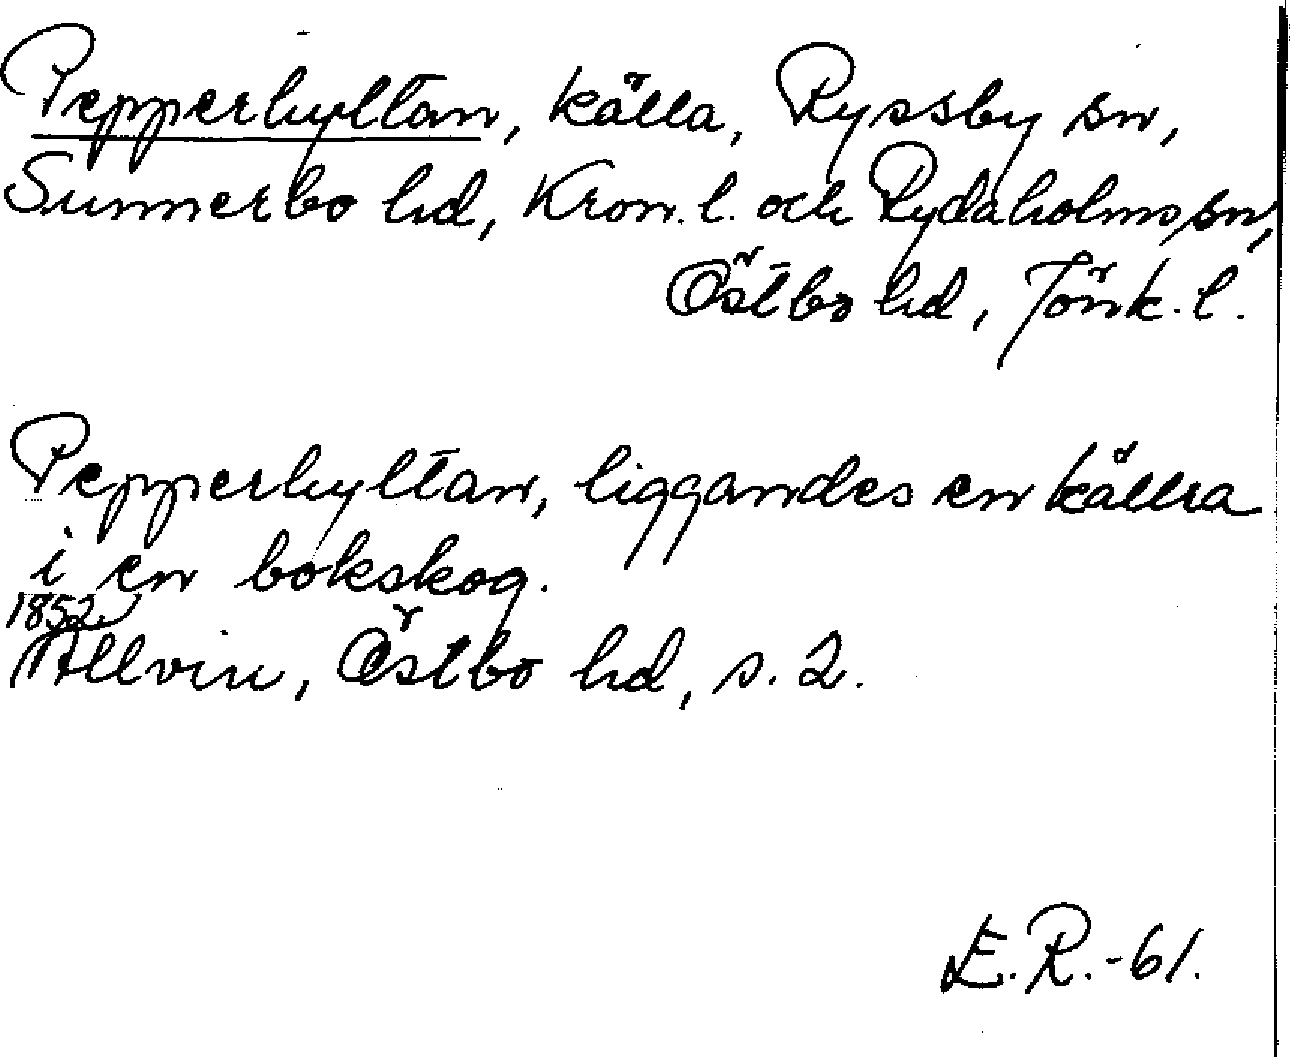 Pepperhyltan, källa, Ryssby sn,
Sunnerbo hd, Kron. l. och Rydaholms sn,
Östbo hd, Jönk. l.
Pepperhyltan, liggandes en källra
i en bokskog.
1852
Allvin, Östbo hd, s. 2.
E. R. -61.